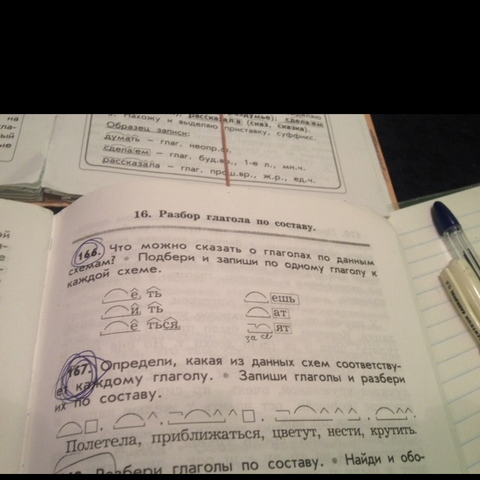 Нахожу и выделяю приставку, суффикс.
Образец записи:
думать – глаг. неопр.ф.
сделаем – глаг. буд.вр., 1-е л., мн.ч.
рассказала – глаг. прош.вр., ж.р., ед.ч.
16. Разбор глагола по составу.
166. Что можно сказать о глаголах по данным
схемам? • Подбери и запиши по одному глаголу к
каждой схеме.
ё ть ешь
и ть ат
ё ться ят
за
167. Определи, какая из данных схем соответству-
ет каждому глаголу. • Запиши глаголы и разбери
их по составу.
Полетела, приближаться, цветут, нести, крутить.
Разбери глаголы по составу. • Найди и обо-